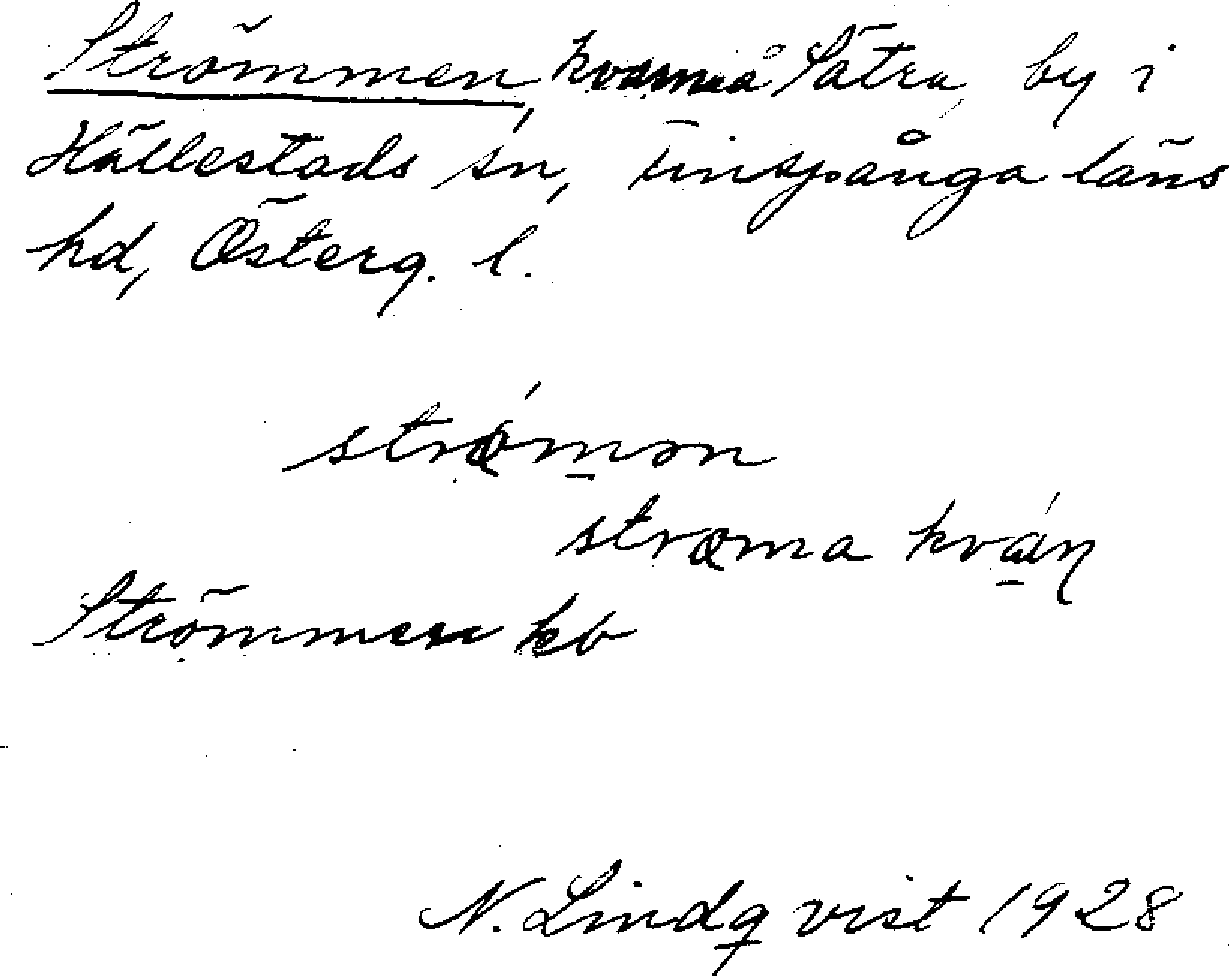 Strömmen, kvarn å Sätra by i
Hällestads sn, Finspånga läns
hd, Österg. l.
strǿmən
strøma kván
Strömmen kb
N. Lindqvist 1928